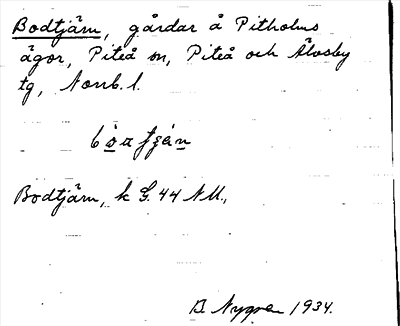 Bodtjärn, gårdar å Pitholms
ägor, Piteå sn, Piteå och Älvsby
tg, Norrb. l.
Bodtjärn, k G. 44 NU.,
B Nygren 1934.